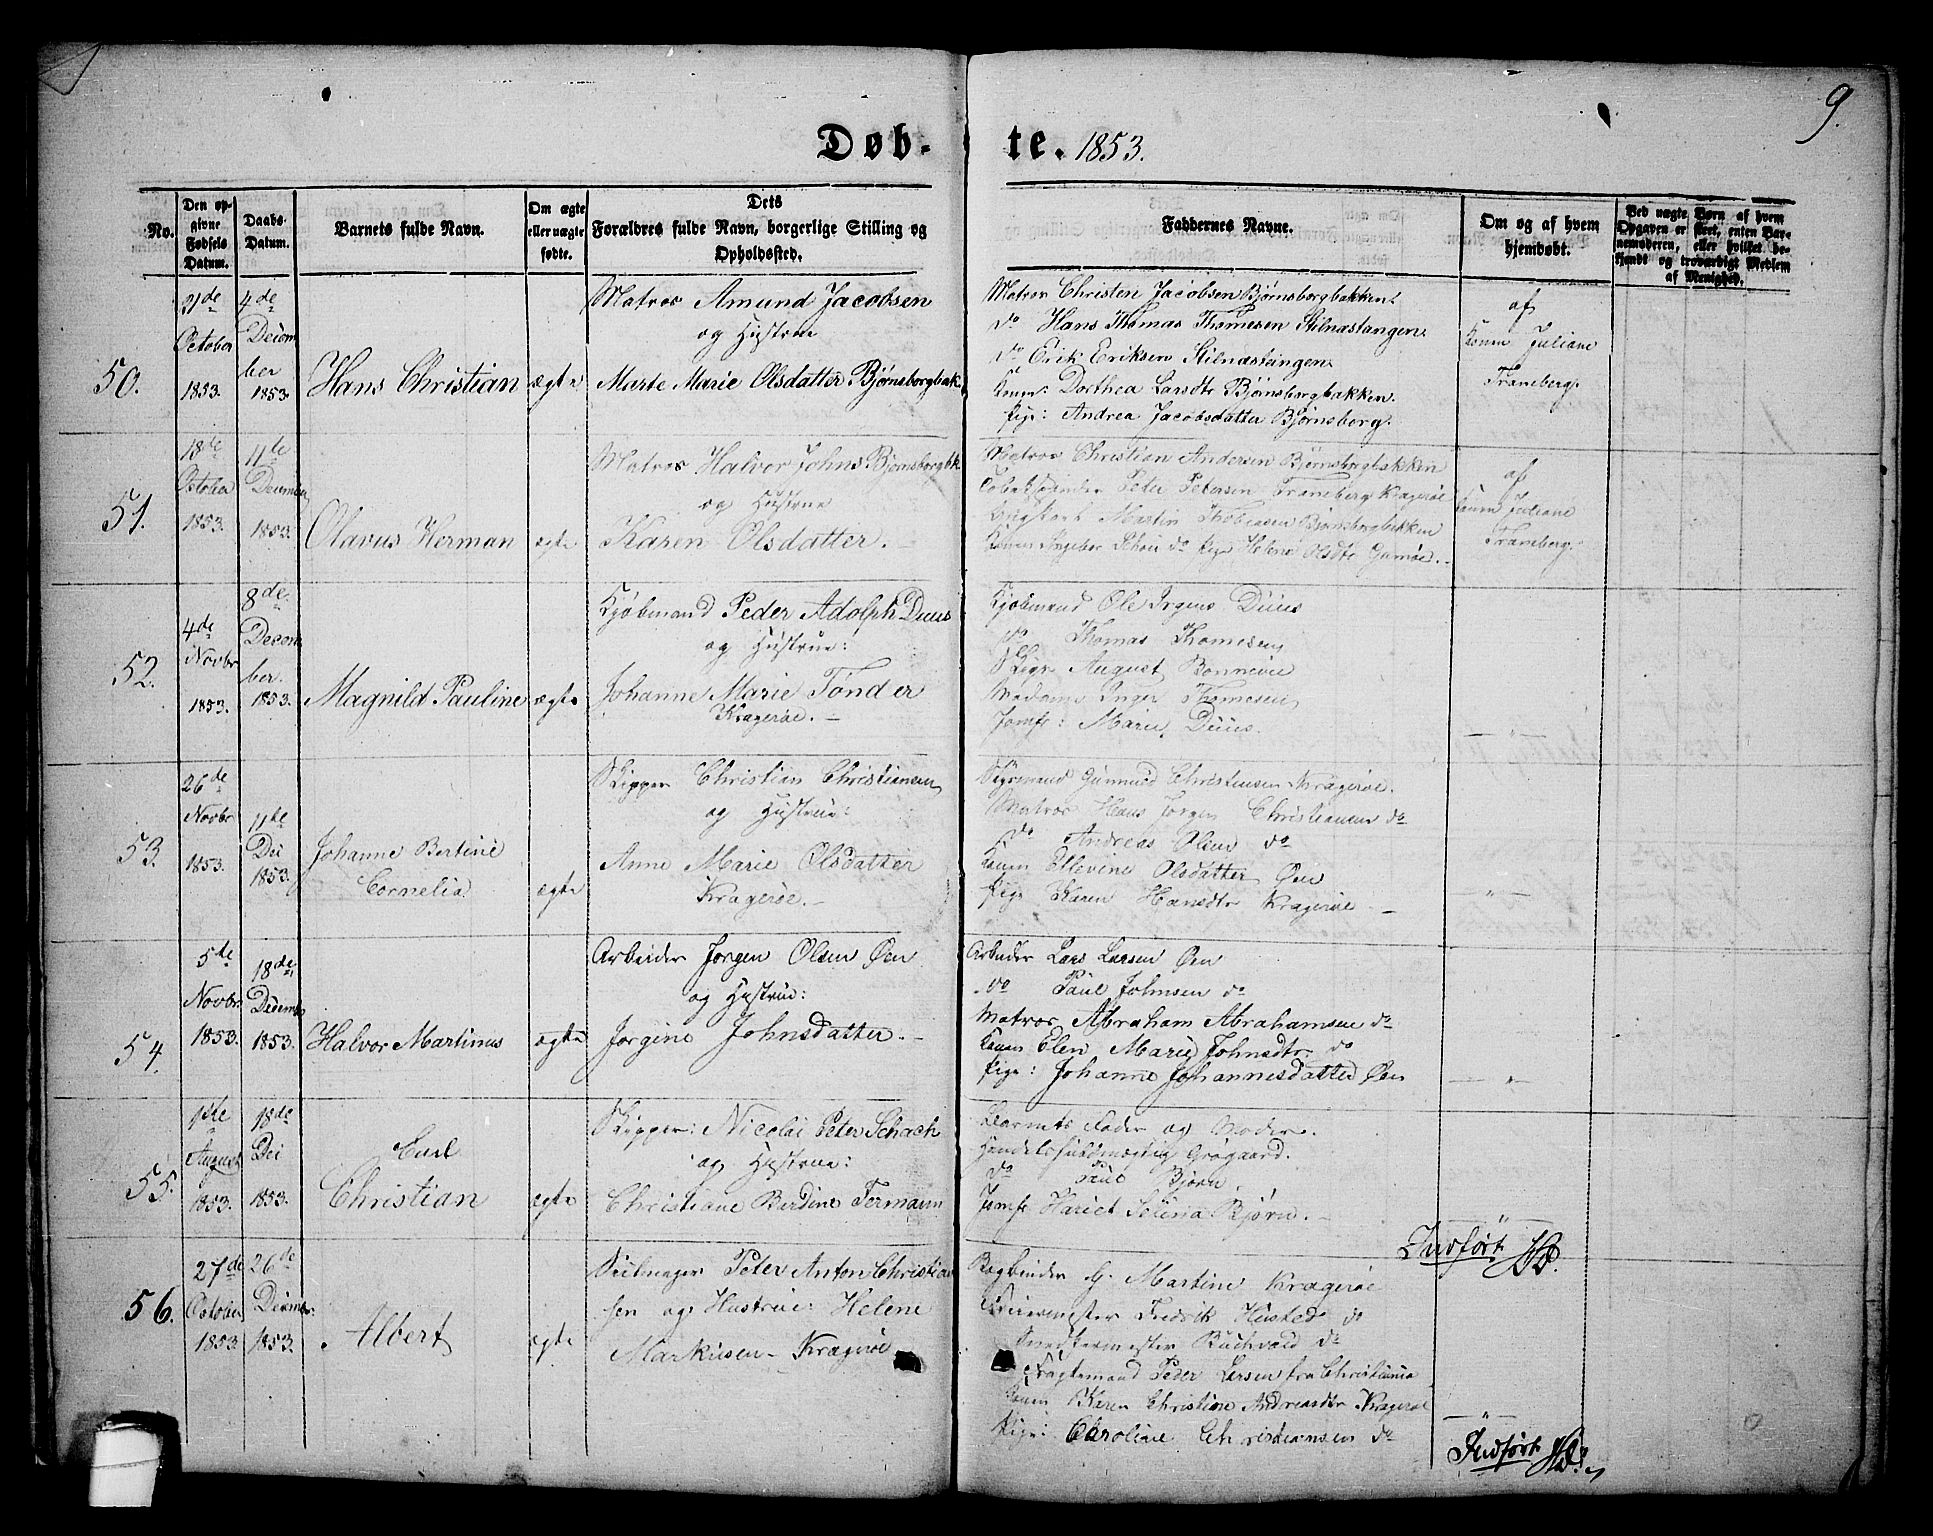 9.
Døb-te. 1853.
No.
Den op-
givne
Fødsels
Datum.
Daabs-
Datum.
Barnets fulde Navn.
Om ægte
eller uægte
fødte.
Dets
Forældres fulde Navn, borgerlige Stilling og
Opholdssted.
Faddernes Navne.
Om og af hvem
hjemdøbt.
Ved uægte Børn af hvem
Opgaven er skeet, enten Bar-
nemoderen, eller hvilket be-
kjendt og troværdigt Medlem
af Menighed.
50.
21de
October
1853.
4de
Decem
ber
1853.
Hans Christian
ægte
Matros Amund Jacobsen
og Hustrue
Marte Marie Olsdatter Bjørnsborgbak.
Matros Christen Jacobsen Bjørnsborgbakken.
do Hans Thomas Thomesen Stilnæstangen.
do Erik Eriksen Stilnæstangen.
Konen: Dorthea Larsdtr Bjørnsborgbakken.
Pige: Andrea Jacobsdatter Bjørnsborg.
af
Konen Juliane
Traneberg.
51.
18de
October
1853.
11te
1853.
Olavus Herman
ægte
Matros Halvor Johns. Bjørnsborgbk.
og Hustrue
Karen Olsdatter.
Matros Christian Andersen Bjørnsborgbakken
Peter Petersen Traneberg Kragerøe
Martin Bjørnsborgbakken
Konen Ingebor do Pige Helene Olsdtr
af
Konen Juliane
Traneberg.
52.
4de
Novbr
1853.
8de
Decem
ber.
1853.
Magnild Pauline
ægte
Kjøbmand Peder Adolph Duus
og Hustrue:
Johanne Marie Tønder
Kragerøe.
Kjøbmand Ole Irgens Duus
do Thomas Thomesen
August Bonnevie
Madame Inger Thomesen
Jomfr: Marie Duus.
— " —
53.
26de
Novbr
1853.
11te
Dec
1853.
Johanne Bertine
Cornelia
ægte
Skipper Christian Christiansen
og Hustrue:
Anne Marie Olsdatter
Kragerøe.
Styrmand Gunnuld Christensen Kragerøe.
Matros Hans Jørgen Christiansen do
do Andreas Olsen do
Konen Ellevine Olsdatter Øen
Pige Karen Hansdtr Kragerøe
— " —
54.
5de
Novbr
1853.
18de
Decembr
1853.
Halvor Martinus
ægte
Arbeider Jørgen Olsen Øen
og Hustrue:
Jørgine Johnsdatter.
Arbeider Lars Larsen Øen
do Paul Johnsen do
Matros Abraham Abrahamsen do
Konen Elen Marie Johnsdtr. do
Pige: Johanne Johannesdatter Øen
— " —
55.
1ste
August
1853.
18de
Dec
1853.
Carl
Christian
ægte
Skipper: Nicolai Peter Schach
og Hustrue:
Christiane Berdine Fermann
Barnets Fader og Moder.
Handelsfuldmægtig Grøgaard.
do Paul Bjørn.
Jomfr Hariet Selena Bjørn.
— " —
Indført
56.
27de
October
1853.
26de
Decembr.
1853.
Albert
ægte
Seilmager Peter Anton Christian
sen og Hustrue: Helene
Markusen Kragerøe
Bogbinder G. Martine Kragerøe
Fredrik Husted do
Snedkermester Buchvald do
Fragtemand Peder Larsen fra Christiania
Konen Karen Christine Andreasdtr Kragerøe
Pige: Caroline Christiansen do
— " —
Indført